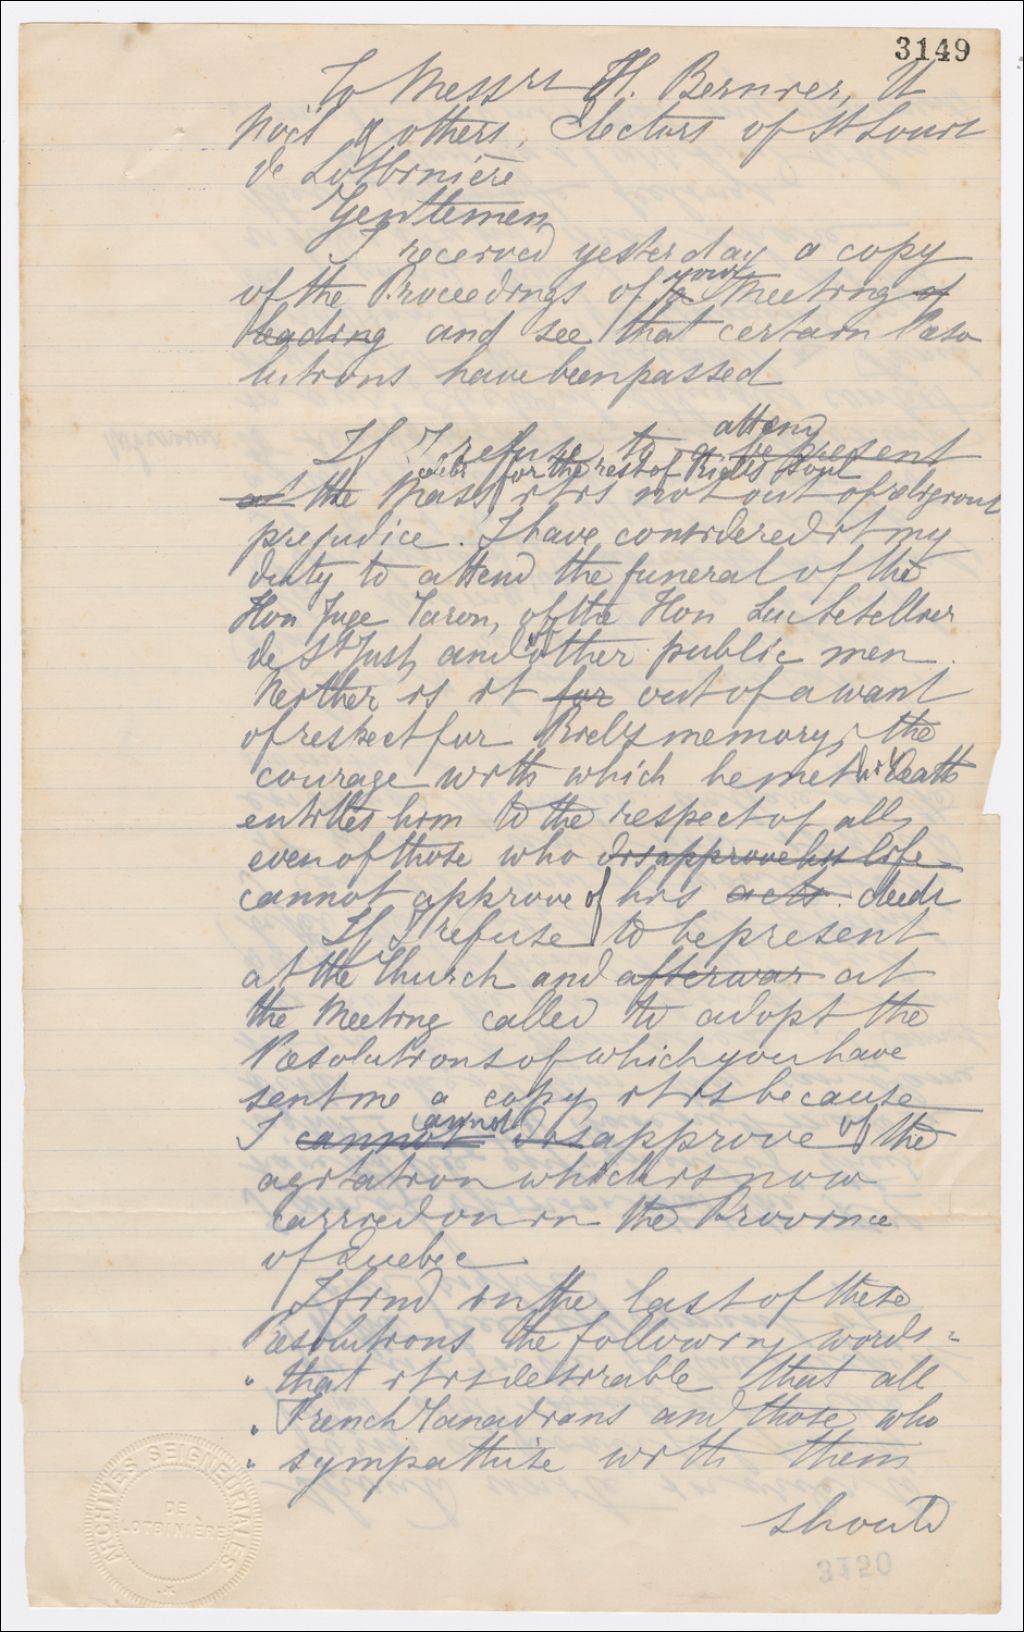 3149
To Messrs H. Bernier, U
Noël & others, Electors of St Louis
de Lotbinière
Gentlemen
I received yesterday a copy
your
of the Proceedings of Meeting of
leading and see that certain Reso
lutions have been passed
attend
If I refuse to be present
for the rest of Riels Soul
at the Mass it is not out of religious
prejudice. I have considered it my
duty to attend the funeral of the
Hon Juge Caron, of the Hon Luc Letellier
de St Just, and of other public men.
Neither is it for out of a want
of respect for Riels memory, the
courage with which he met his Death
entitles him to the respect of all
even of those who disapprove his life
cannot approve of his acts. deeds
If I refuse to be present
at the Church and afterwar at
the Meeting called to adopt the
Resolutions of which you have
sent me a copy it is because
cannot
I cannot disapprove of the
agitation which is now
carried on in the Province
of Quebec
I find in the last of these
Resolutions the following words =
" that it is desirable that all
" French Canadians and those who
" sympathise with them
should
ARCHIVES SEIGNEURIALES
DE
LOTBINIÈRE
3150